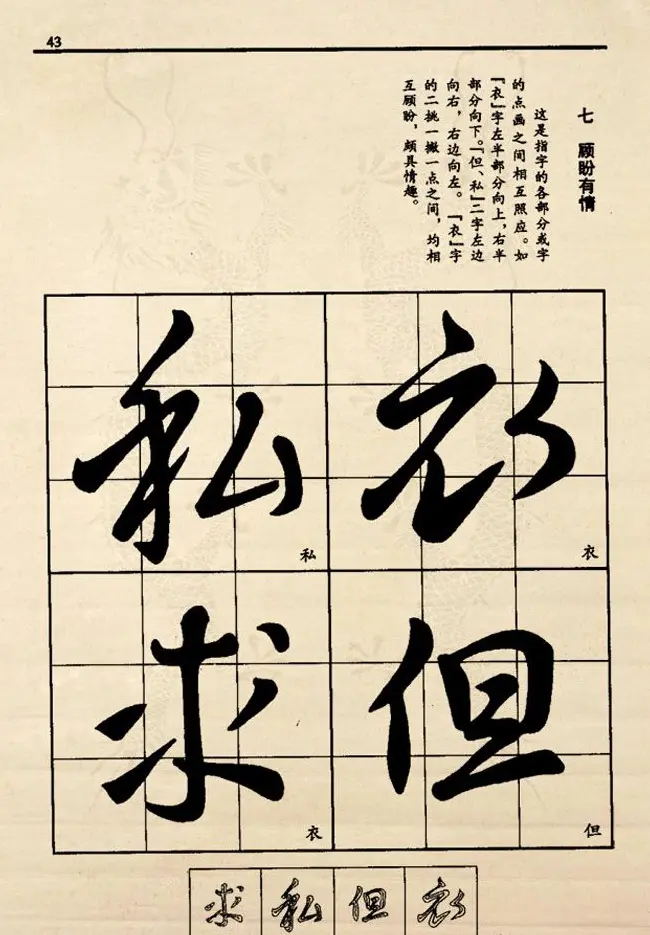 43
七 顾盼有情
这是指字的各部分或字
的点画之间相互照应。如
『衣』字左半部分向上，右半
部分向下。『但、私』二字左边
向右，右边向左。『衣』字
的二挑一撇一点之间，均相
互顾盼，颇具情趣。
衣
衣
但
但
私
私
求
衣
衣但私求